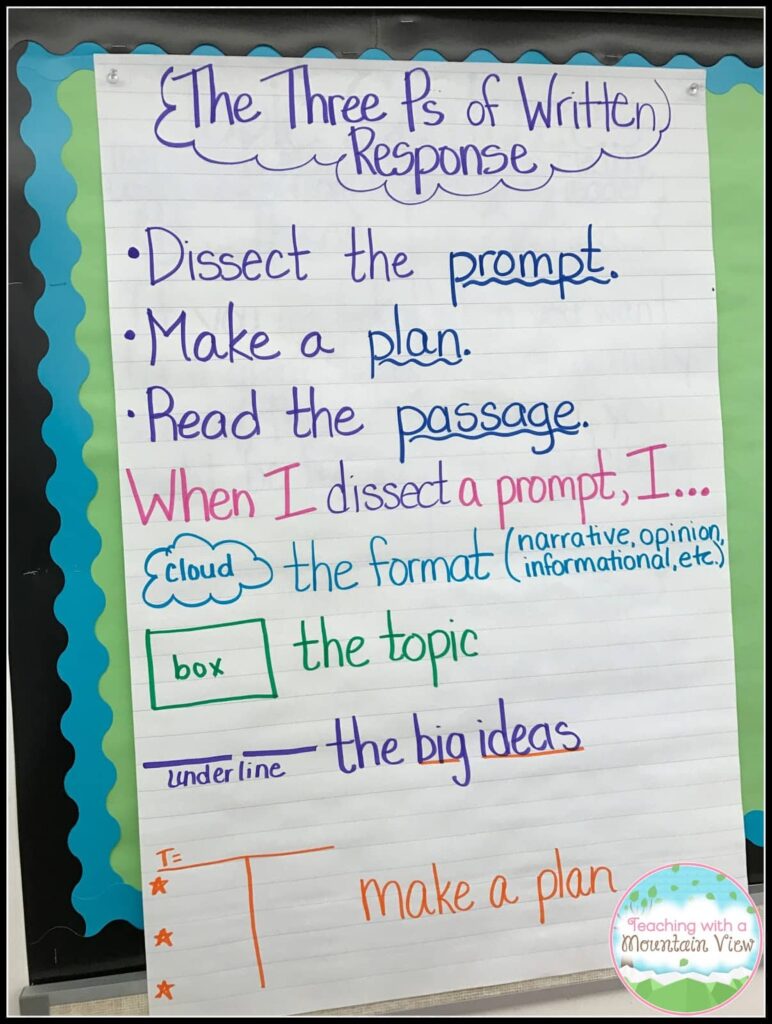 The Three Ps of Written
Response
• Dissect the prompt.
• Make a plan.
• Read the passage.
When I dissect a prompt, I...
cloud the format (narrative, opinion,
informational, etc.)
box the topic
underline the big ideas
T=
make a plan
Teaching with a
Mountain View